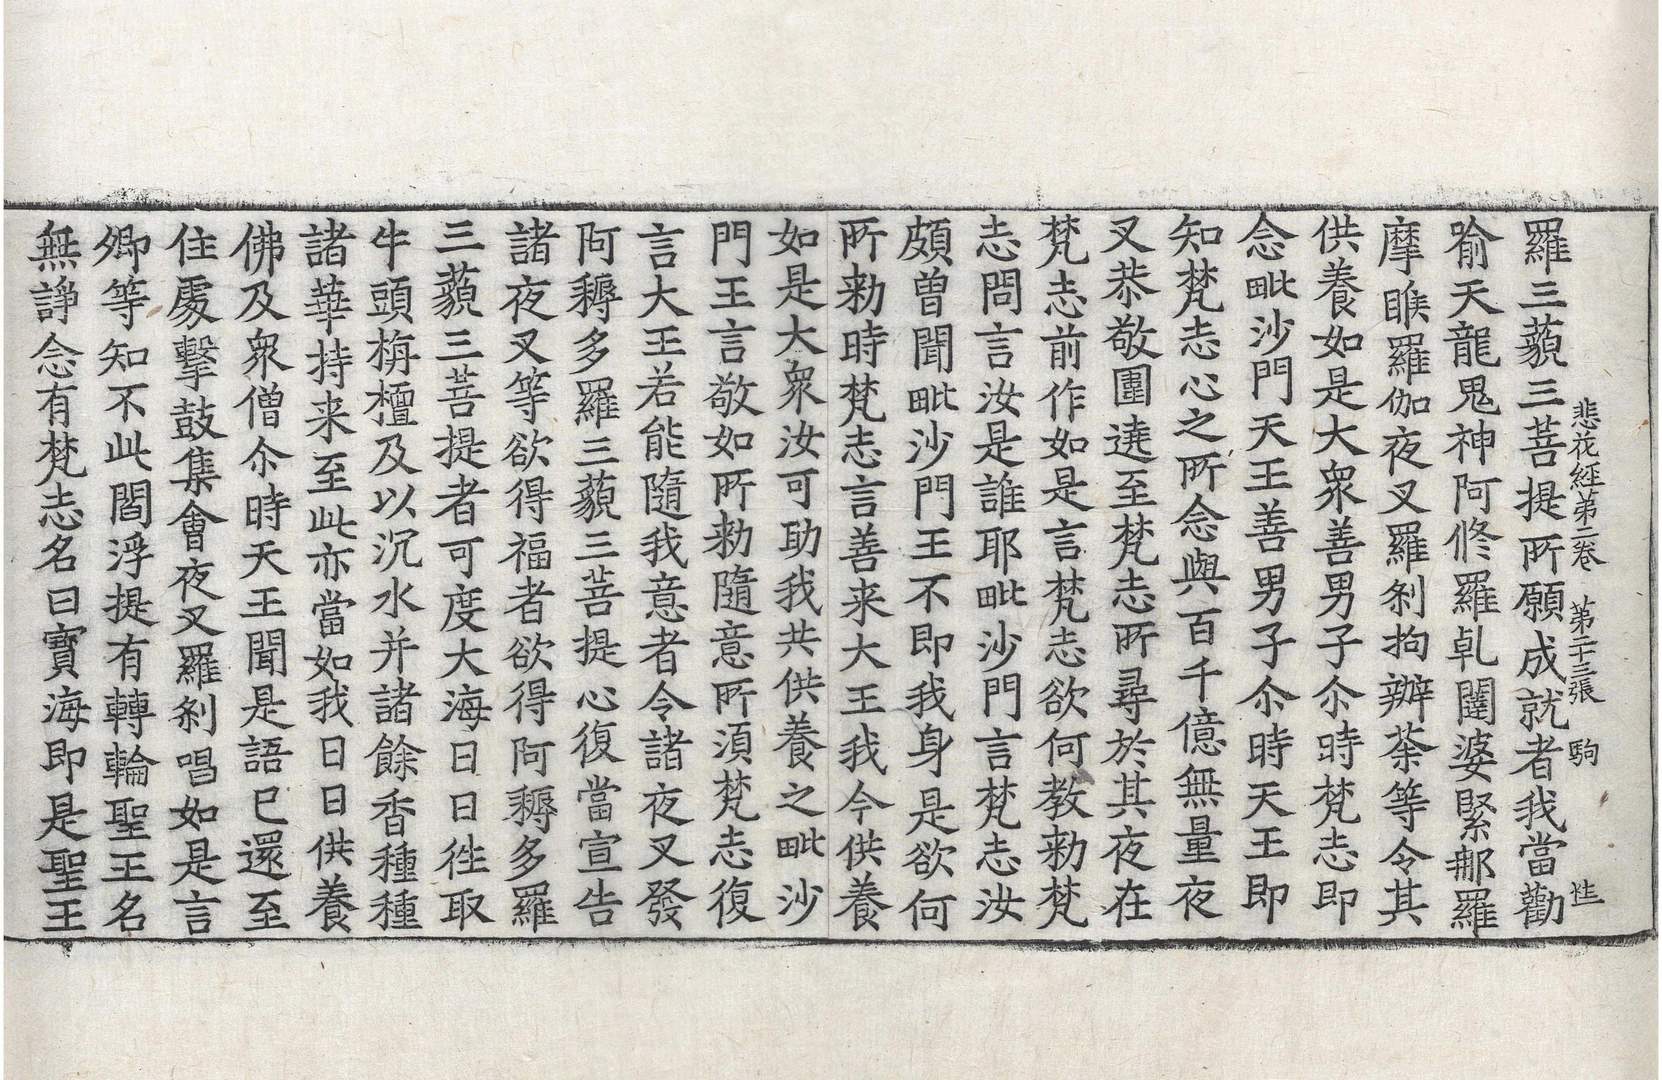 悲花經第二卷 第二十三張 駒
羅三藐三菩提所願成就者我當勸
喻天龍鬼神阿修羅乹闥婆緊那羅
摩睺羅伽夜叉羅刹拘辦荼等令其
供養如是大衆善男子尒時梵志即
念毗沙門天王善男子尒時天王即
知梵志心之所念與百千億無量夜
叉恭敬圍遶至梵志所尋於其夜在
梵志前作如是言梵志欲何教勑梵
志問言汝是誰耶毗沙門言梵志汝
頗曾聞毗沙門王不即我身是欲何
所勑時梵志言善来大王我今供養
如是大衆汝可助我共供養之毗沙
門王言敬如所勑隨意所湏梵志復
言大王若能隨我意者令諸夜叉發
阿耨多羅三藐三菩提心復當宣告
諸夜叉等欲得福者欲得阿耨多羅
三藐三菩提者可度大海日日徃取
牛頭栴檀及以沉水并諸餘香種種
諸華持来至此亦當如我日日供養
佛及衆僧尒時天王聞是語已還至
住處擊鼓集會夜叉羅刹唱如是言
卿等知不此閻浮提有轉輪聖王名
無諍念有梵志名曰寶海即是聖王